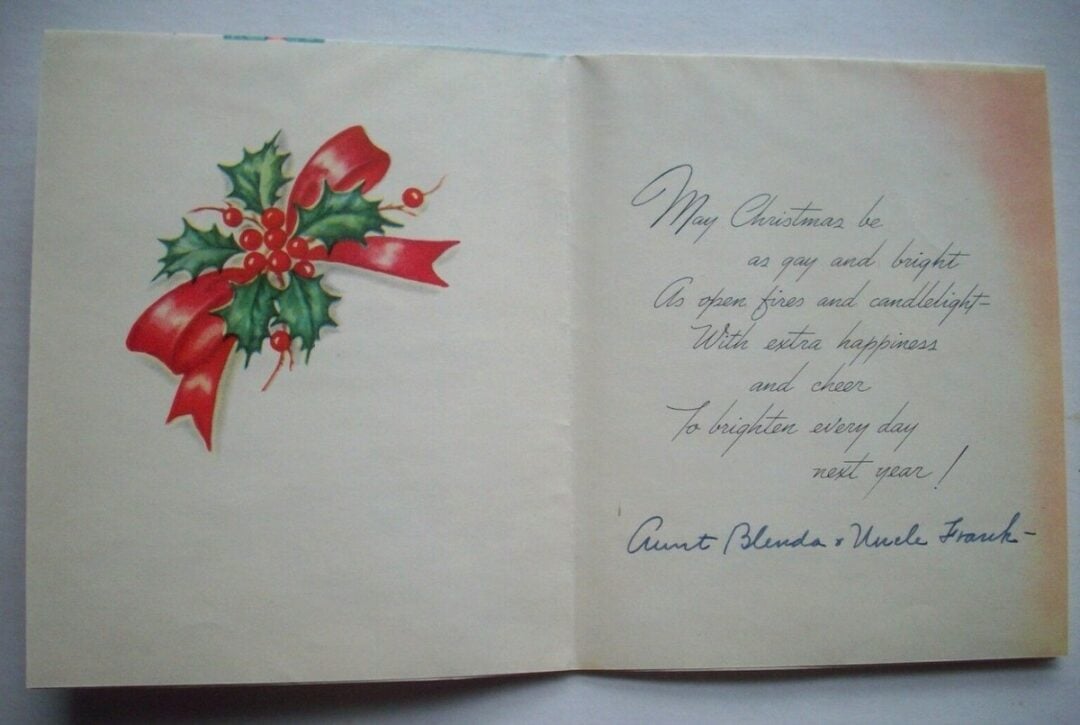 May Christmas be
as gay and bright
As open fires and candlelight-
With extra happiness
and cheer
To brighten every day
next year!
Aunt Blenda & Uncle Frank-